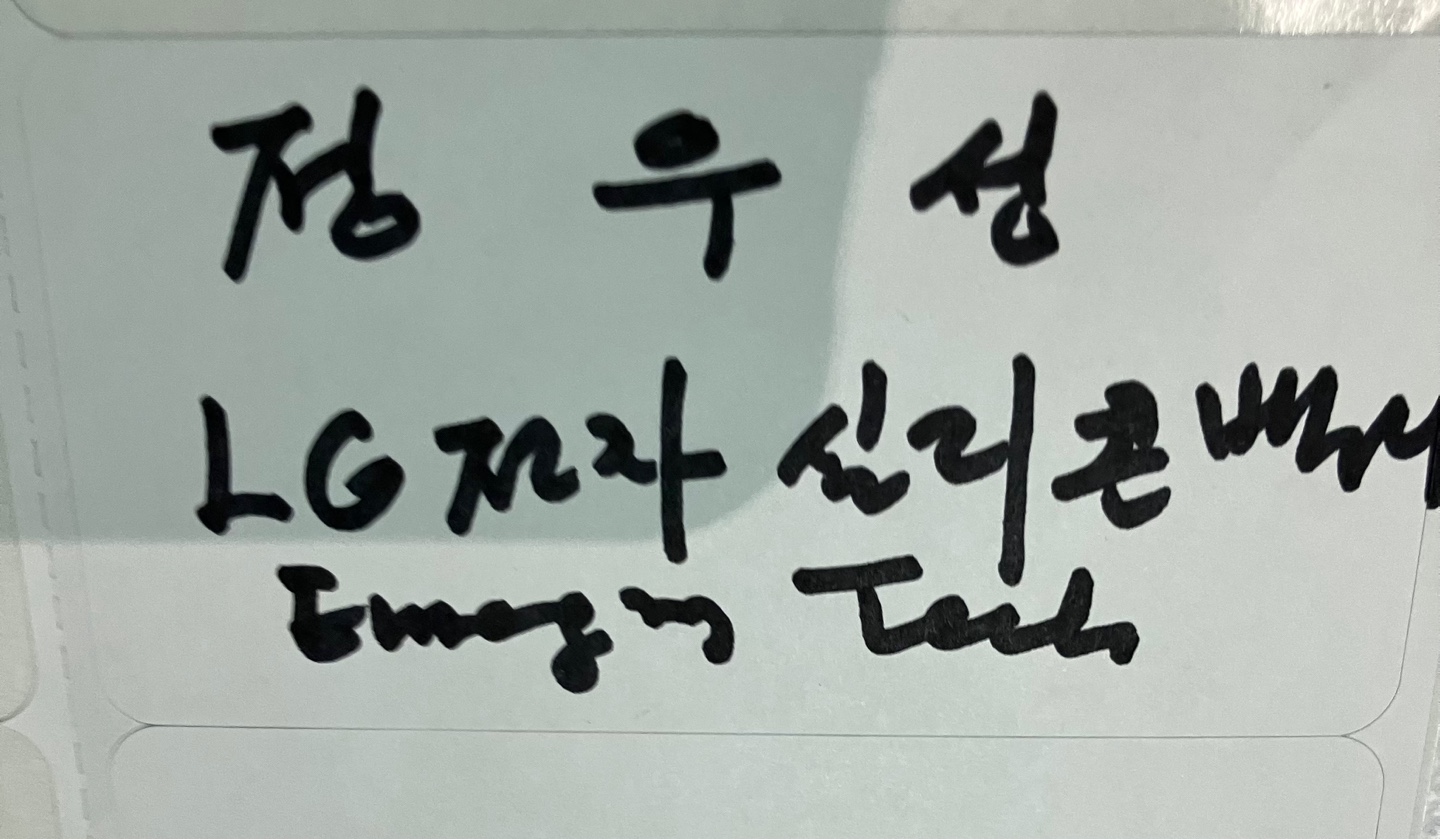 정 우 성
LG전자 실리콘밸리
Emerging Tech